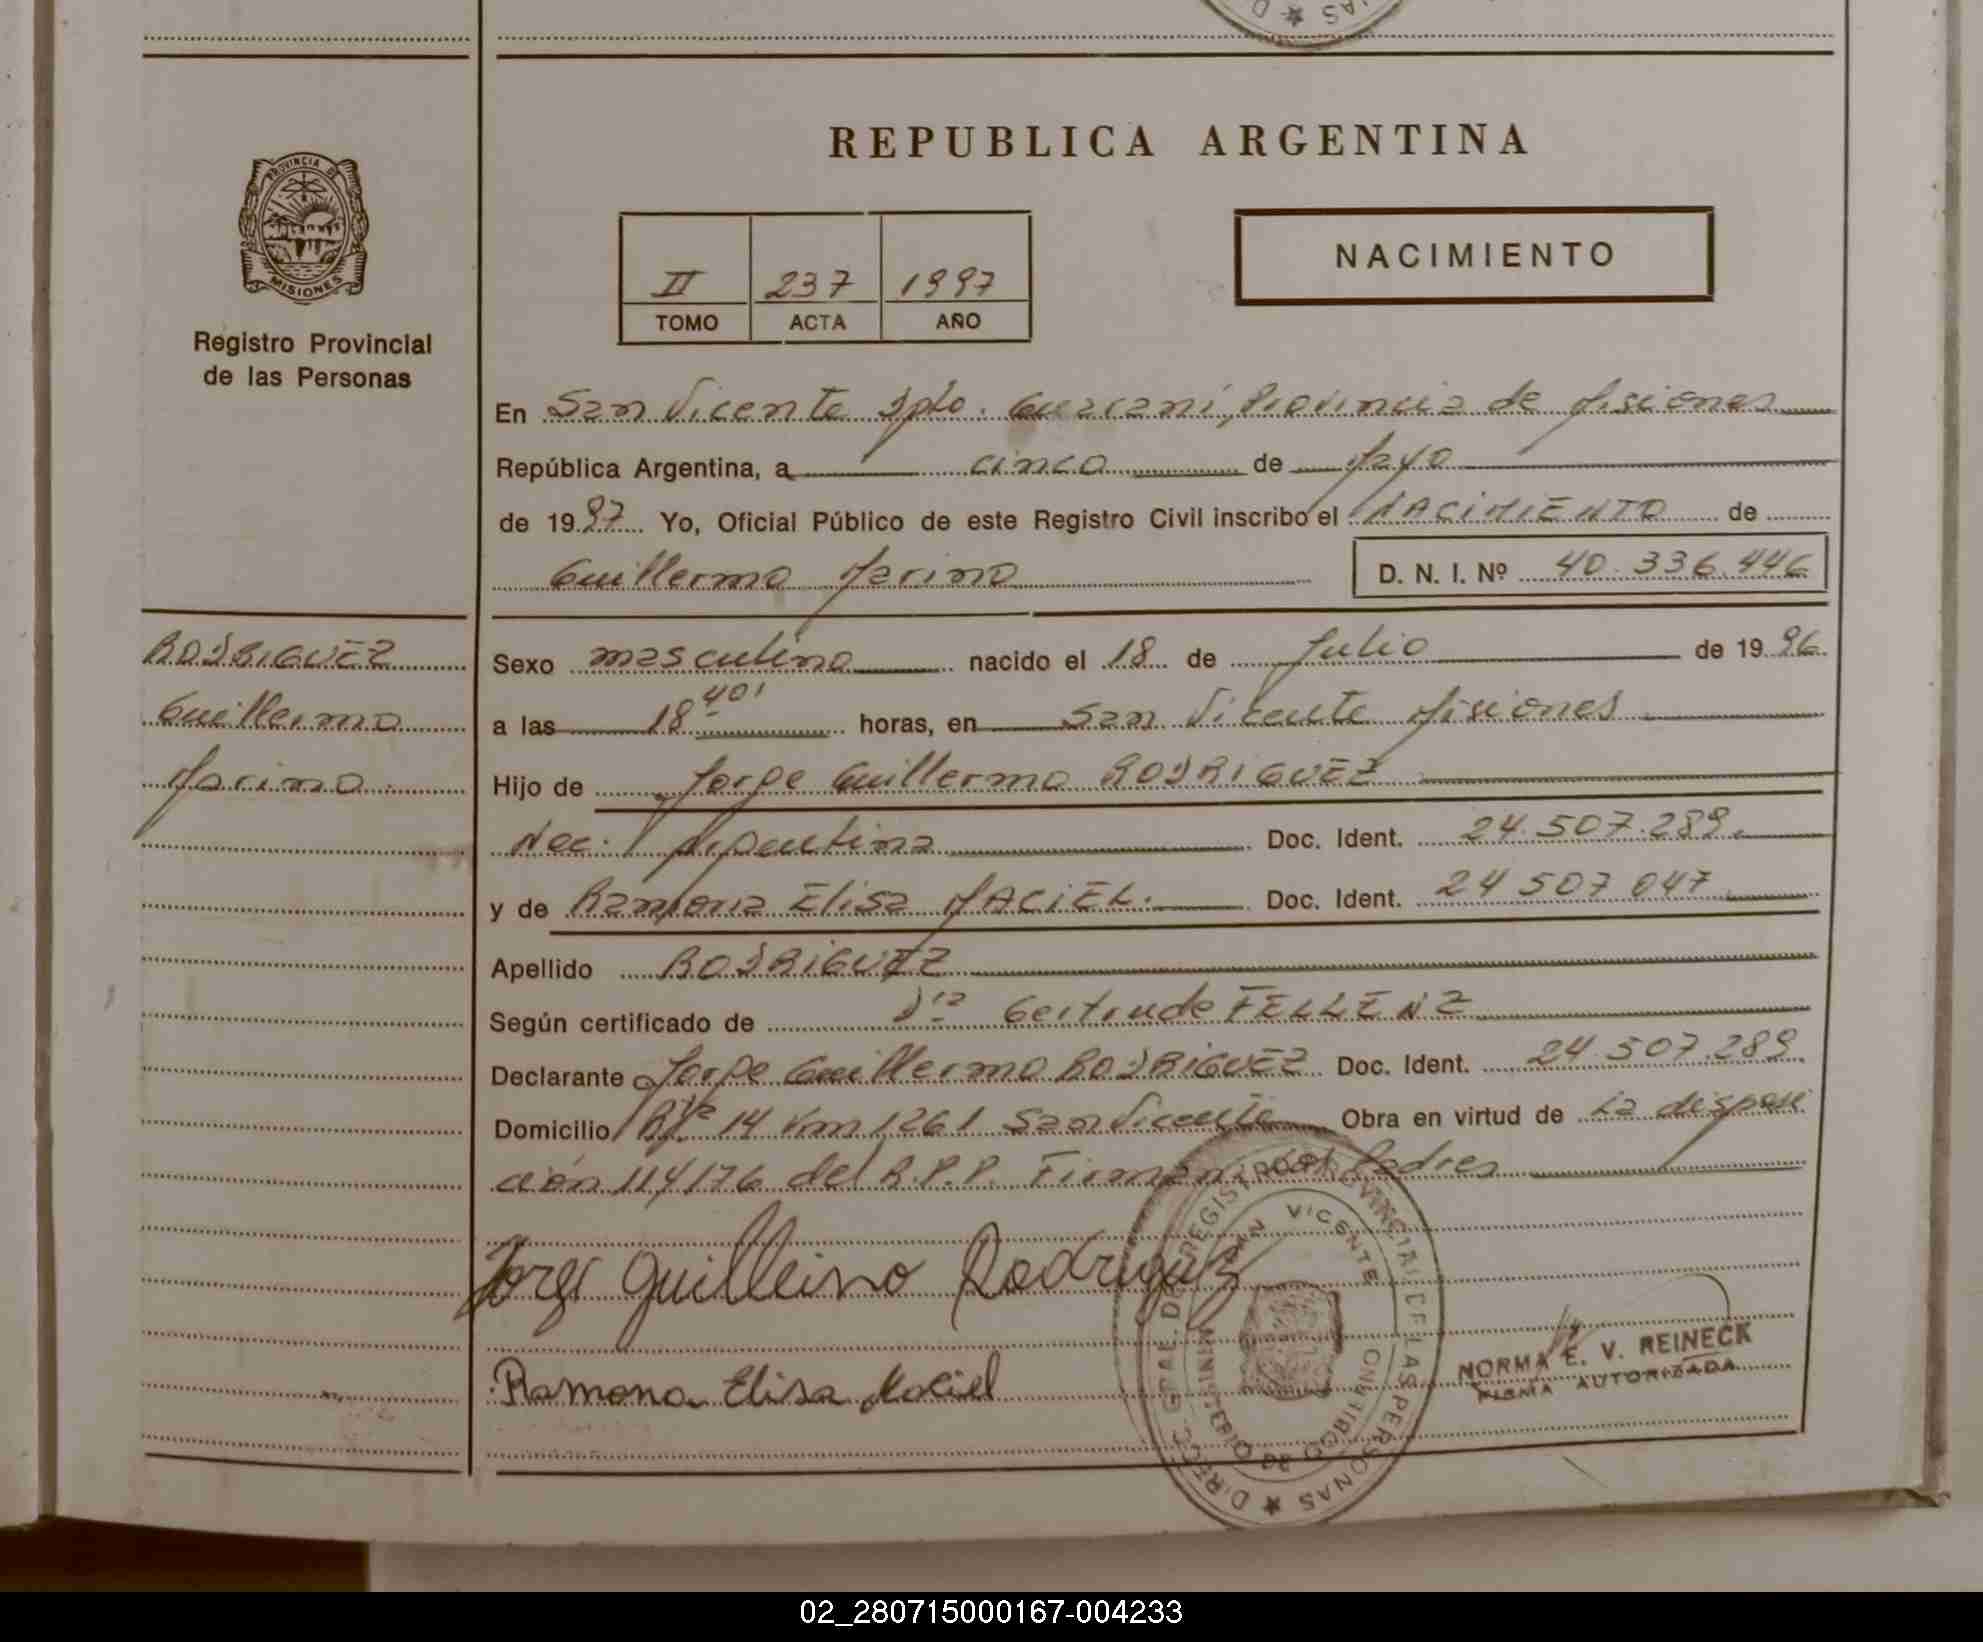 REPUBLICA ARGENTINA
PROVINCIA DE MISIONES
Registro Provincial
de las Personas
NACIMIENTO
II 237 1997
TOMO ACTA AÑO
En San Vicente Dpto. Guaraní, Provincia de Misiones
República Argentina, a cinco de Mayo
de 1997 Yo, Oficial Público de este Registro Civil inscribo el NACIMIENTO de
Guillermo Marino D. N. I. Nº 40.336.446
RODRIGUEZ
Guillermo
Marino
Sexo masculino nacido el 18 de Julio de 1996
a las 18 40' horas, en San Vicente Misiones
Hijo de Jorge Guillermo RODRIGUEZ
Nac. Argentina Doc. Ident. 24.507.289.
y de Ramona Elisa MACIEL. Doc. Ident. 24 507 047
Apellido RODRIGUEZ
Según certificado de Gertrude FELLENZ
Declarante Jorge Guillermo RODRIGUEZ Doc. Ident. 24.507.289
Domicilio 14 Km 1261 San Vicente Obra en virtud de la disposi
ción 114/176 del R.P.P. Firman los Padres
Jorge Guillermo Rodriguez
Ramona Elisa Maciel
DIRECC. GRAL. DE REGISTRO PROVINCIAL DE LAS PERSONAS
SAN VICENTE
NORMA E. V. REINECK
FIRMA AUTORIZADA
02_280715000167-004233